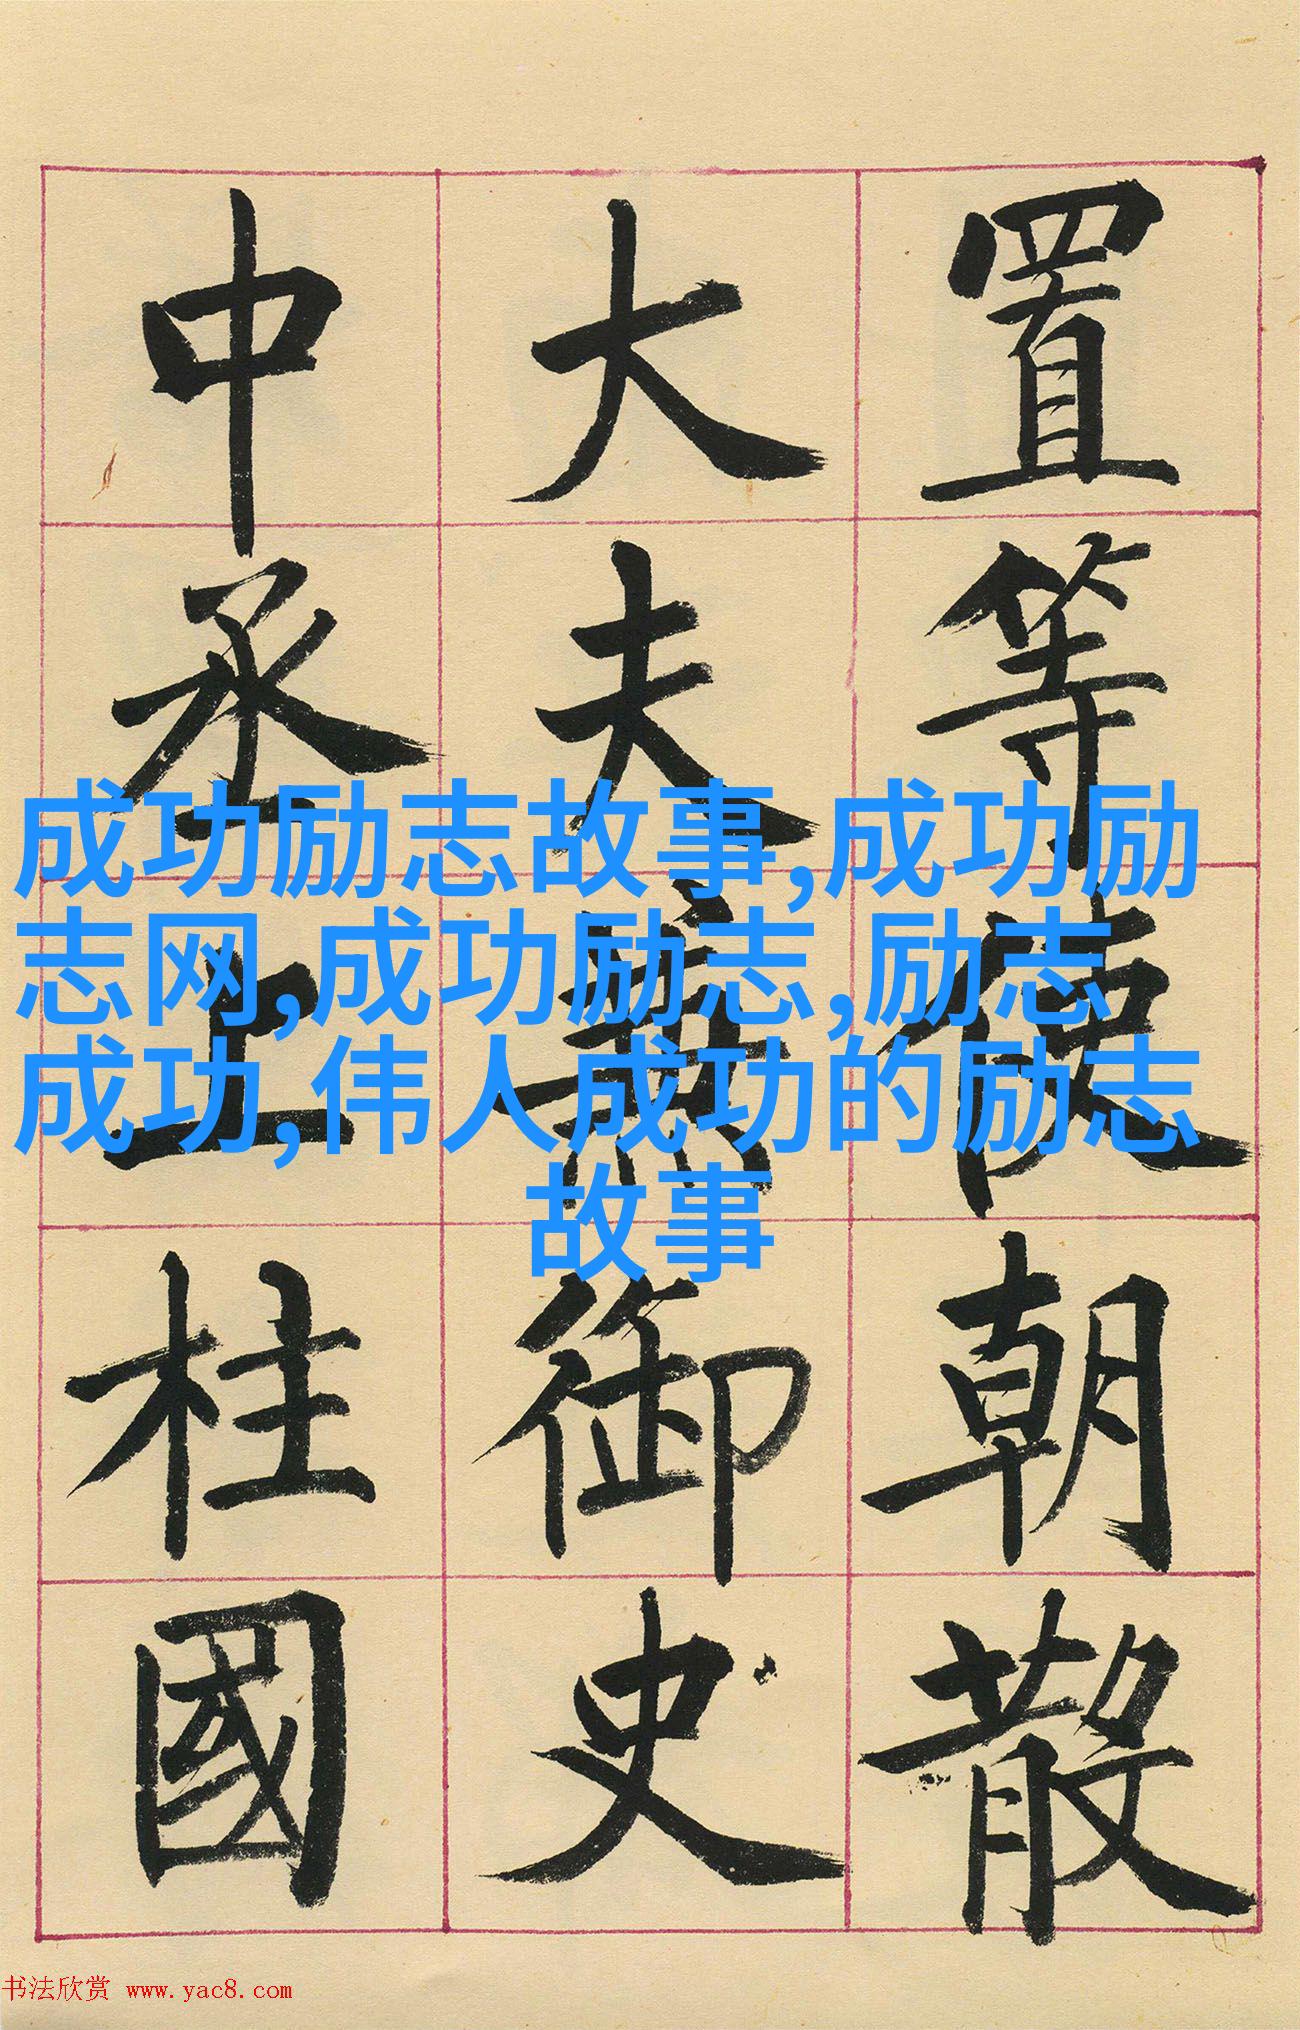 置等使朝散
大夫兼御史
中丞上柱國
成功励志故事,成功励
志网,成功励志,励志
成功,伟人成功的励志
故事
书法欣赏 www.yac8.com